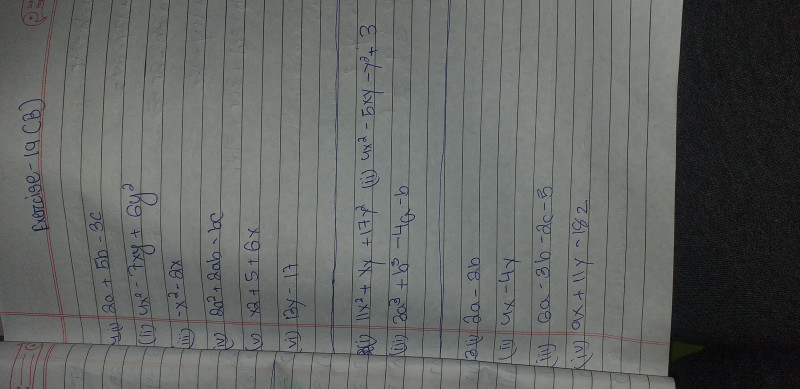 Exercise - 19 (B)
1(i) 2a + 5b - 3c
(ii) 4x² - 7xy + 6y²
(iii) -x² - 2x
(iv) 2a² + 2ab - bc
(v) x2 + 5 + 6x
(vi) 13y - 17
2(i) 11x² + xy + 17y² (ii) 4x² - 5xy - y² + 3
(iii) 3a³ + b³ - 4a - b
3(i) 2a - 2b
(ii) 4x - 4y
(iii) 6a - 3b - 2c - 5
(iv) 9x + 11y - 18z